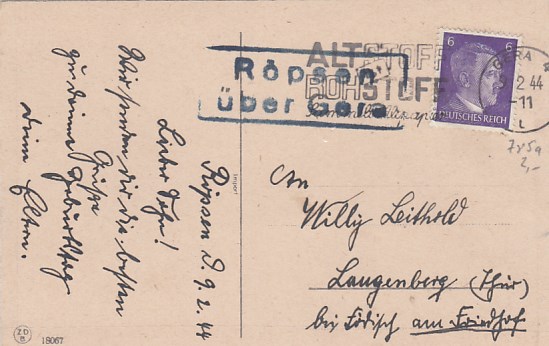 Röpsen
über Gera
ALTSTOFF
ROHSTOFF
6 6
DEUTSCHES REICH
GERA
2.44
-11
7x5a
2,-
Röpsen d. 9.2.44
Lieber
Wir senden dir die besten
Grüße
zu deinem Geburtstag
deine Eltern.
Import
An
Willy Leithold
Langenberg (Thür)
bei Födisch am Friedhof
ZD
B
18067